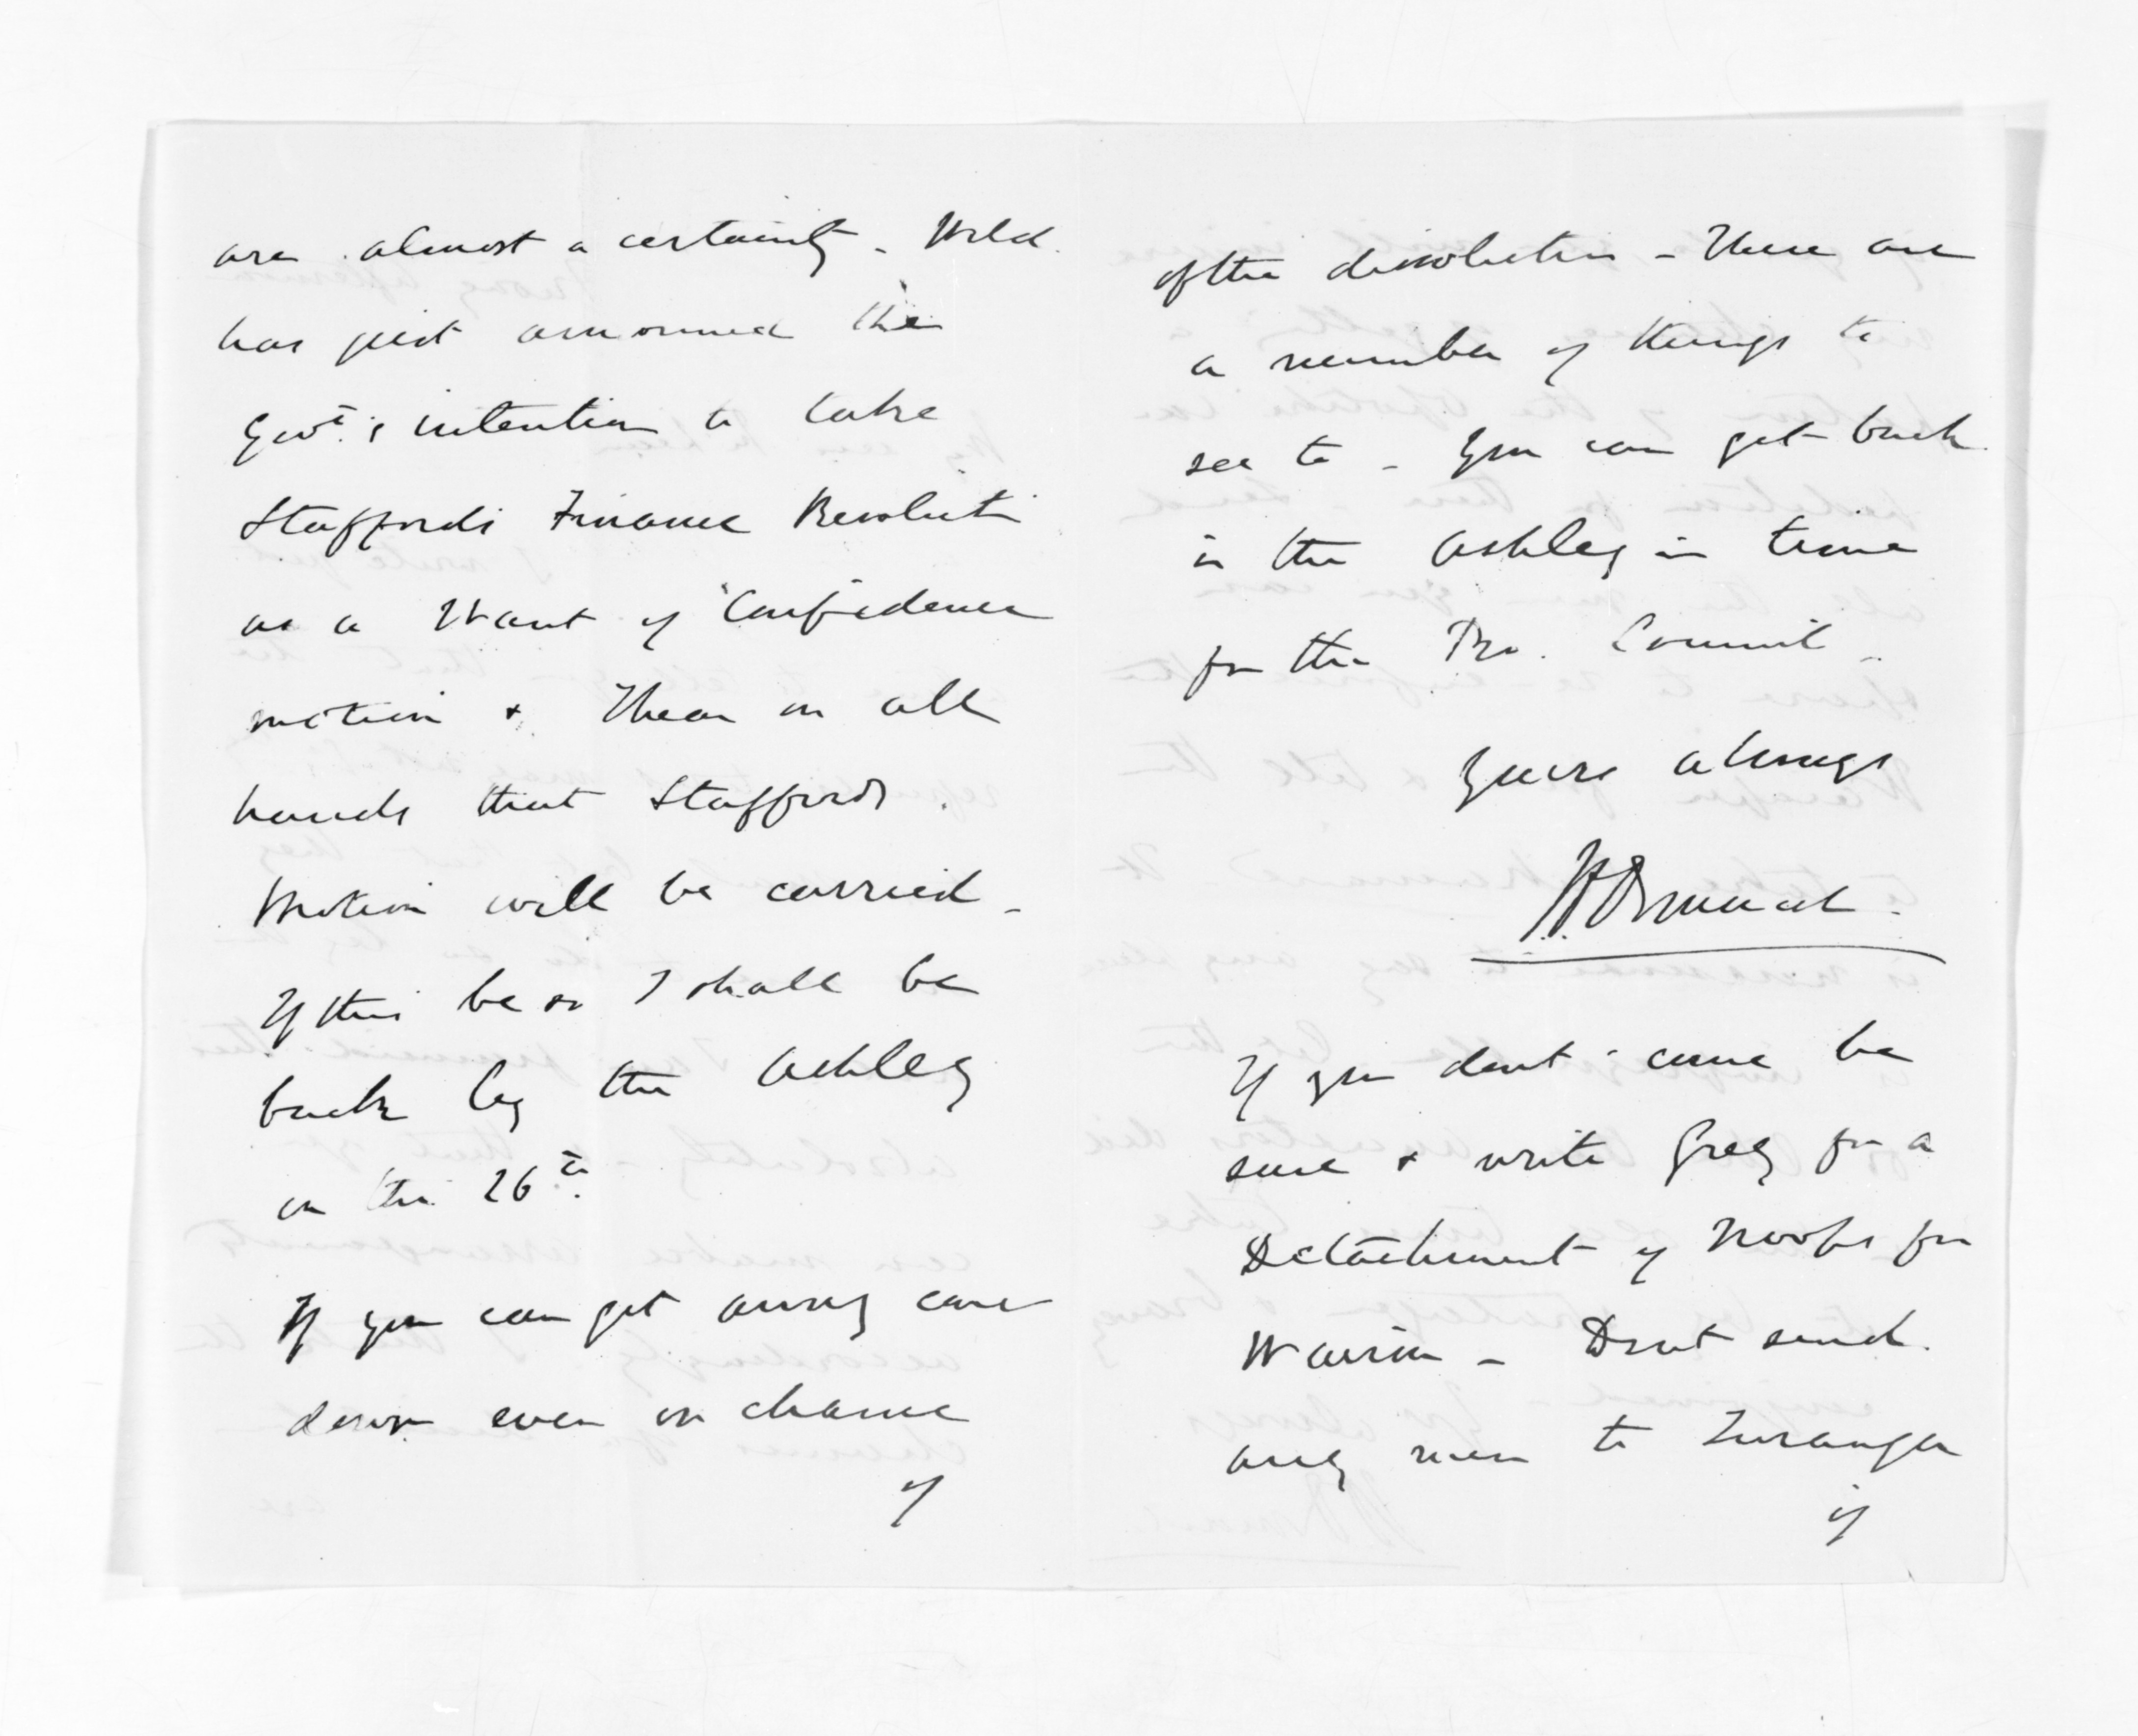 are almost a certainty - Weld
has just announced the
Govt.'s intention to take
Staffords Finance Resoluti
as a Want of Confidence
motion & I hear on all
hands that Staffords
Motion will be carried -
If this be so I shall be
back by the Ashley
on the 26th.
If you can get away come
down even on chance
of
of the dissolution - There are
a number of things to
see to - You can get back
in the Ashley in time
for the Pro. Council -
Yours always
If you dont come be
sure & write Greg for a
Detachment of troops for
Wairoa - Dont send
any men to Turanga
if